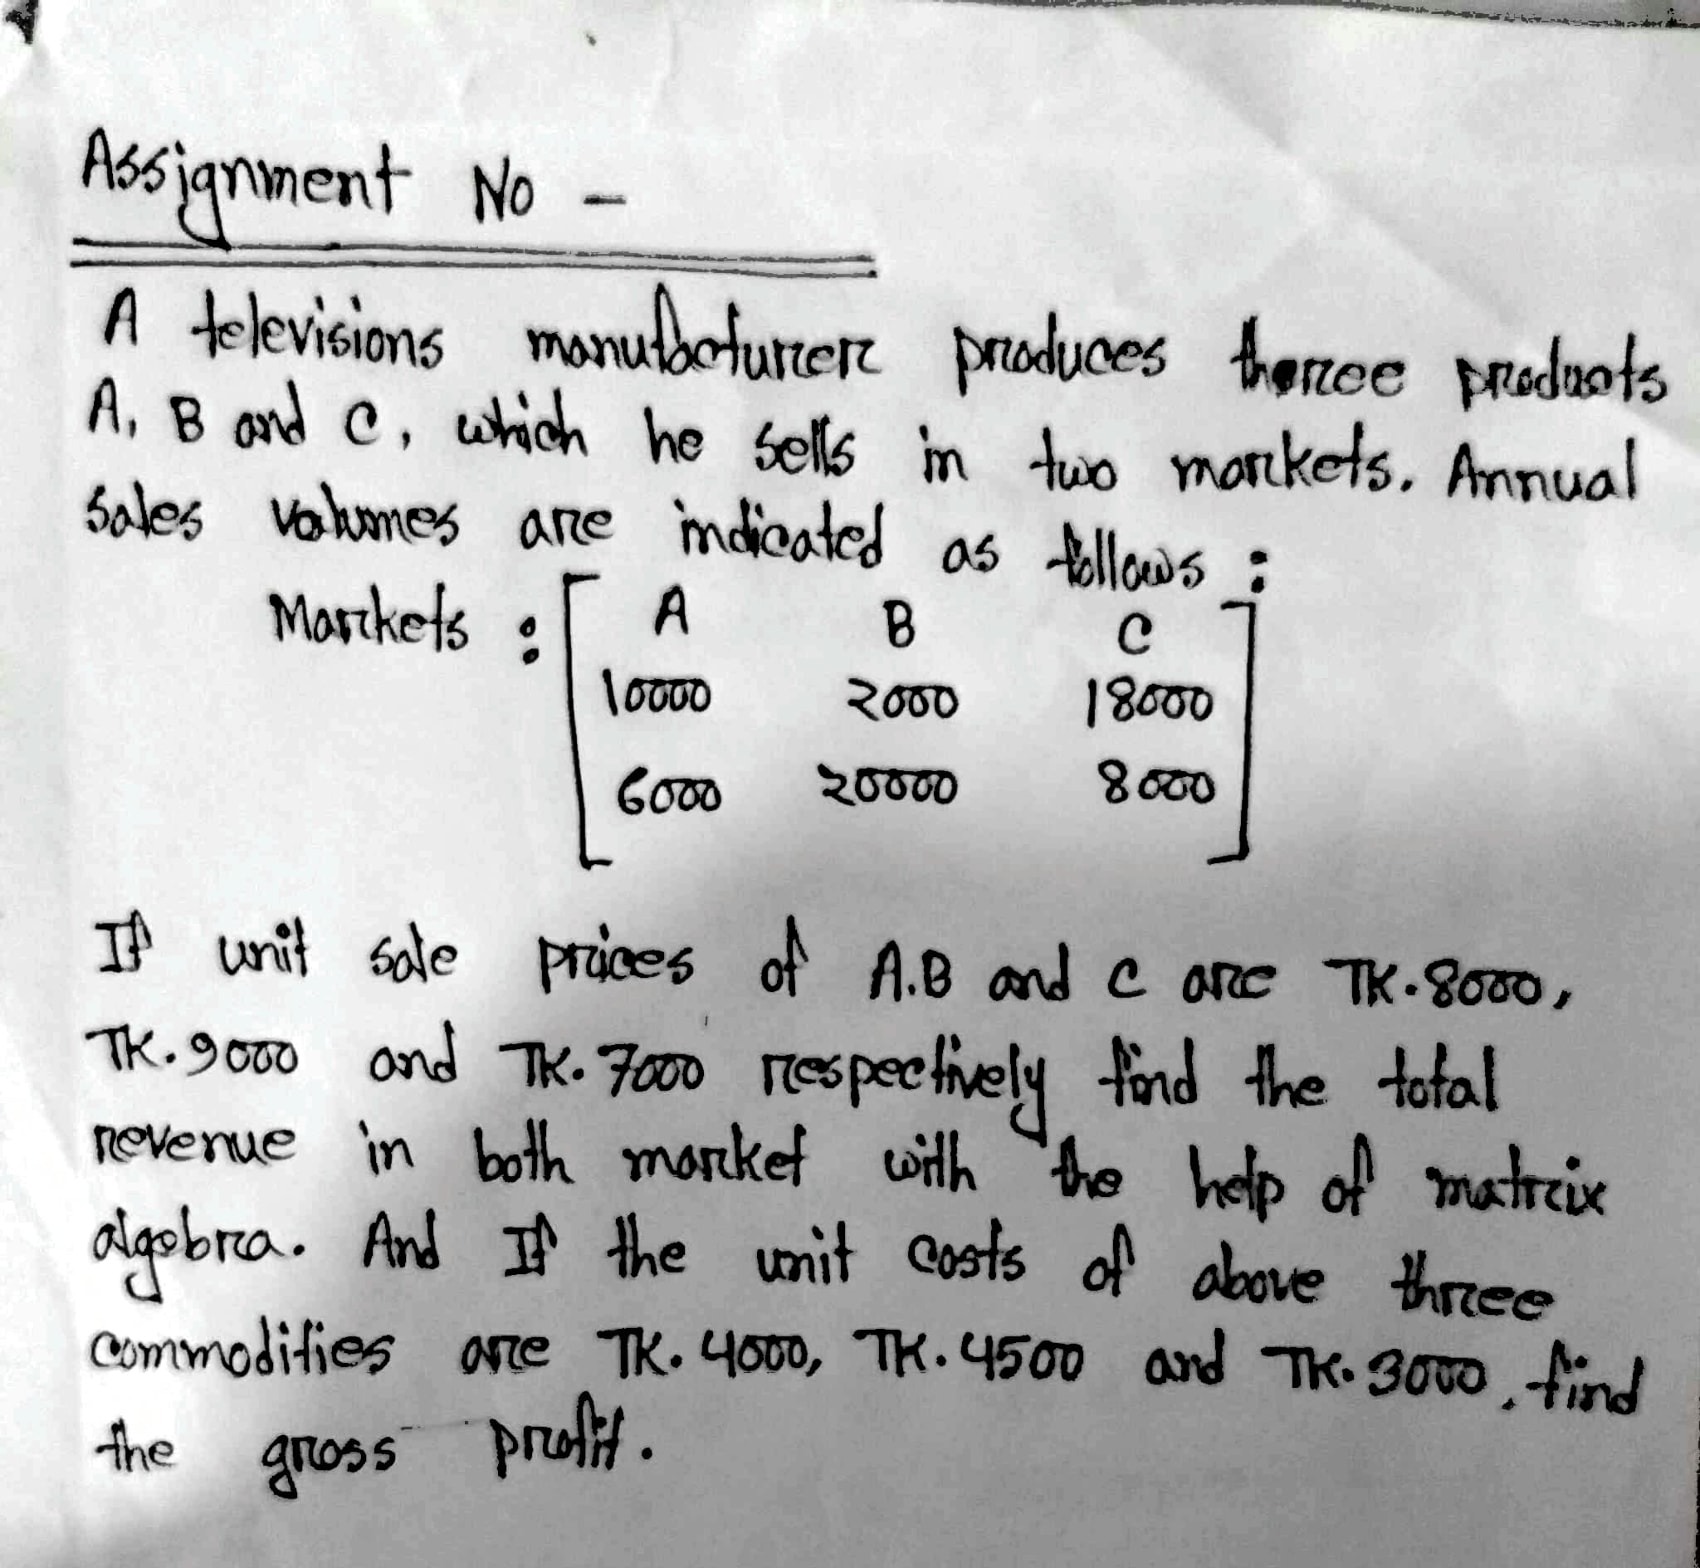 Assignment No -
A televisions manufacturer produces three products
A, B and C, which he sells in two markets. Annual
sales volumes are indicated as follows :
Markets : [ A B C
10000 2000 18000
6000 20000 8000 ]
If unit sale prices of A.B and C are TK.8000,
TK.9000 and TK.7000 respectively find the total
revenue in both market with the help of matrix
algebra. And If the unit costs of above three
commodities are TK. 4000, TK.4500 and TK.3000, find
the gross profit.